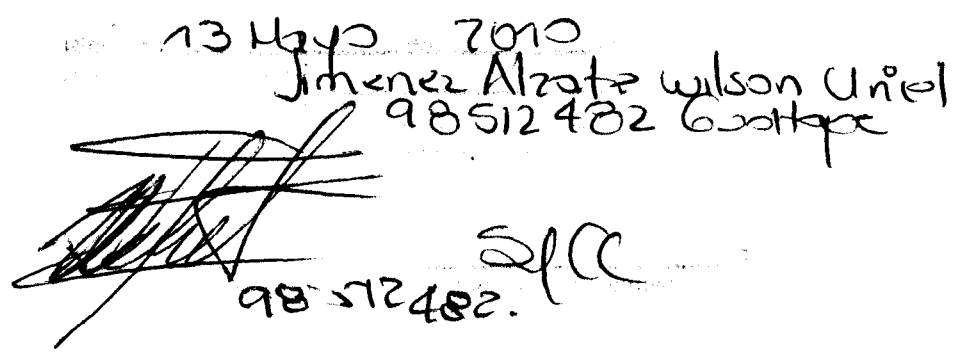 13 Mayo 2010
Jimenez Alzate Wilson Uriel
98512482 Guatape
98512482.